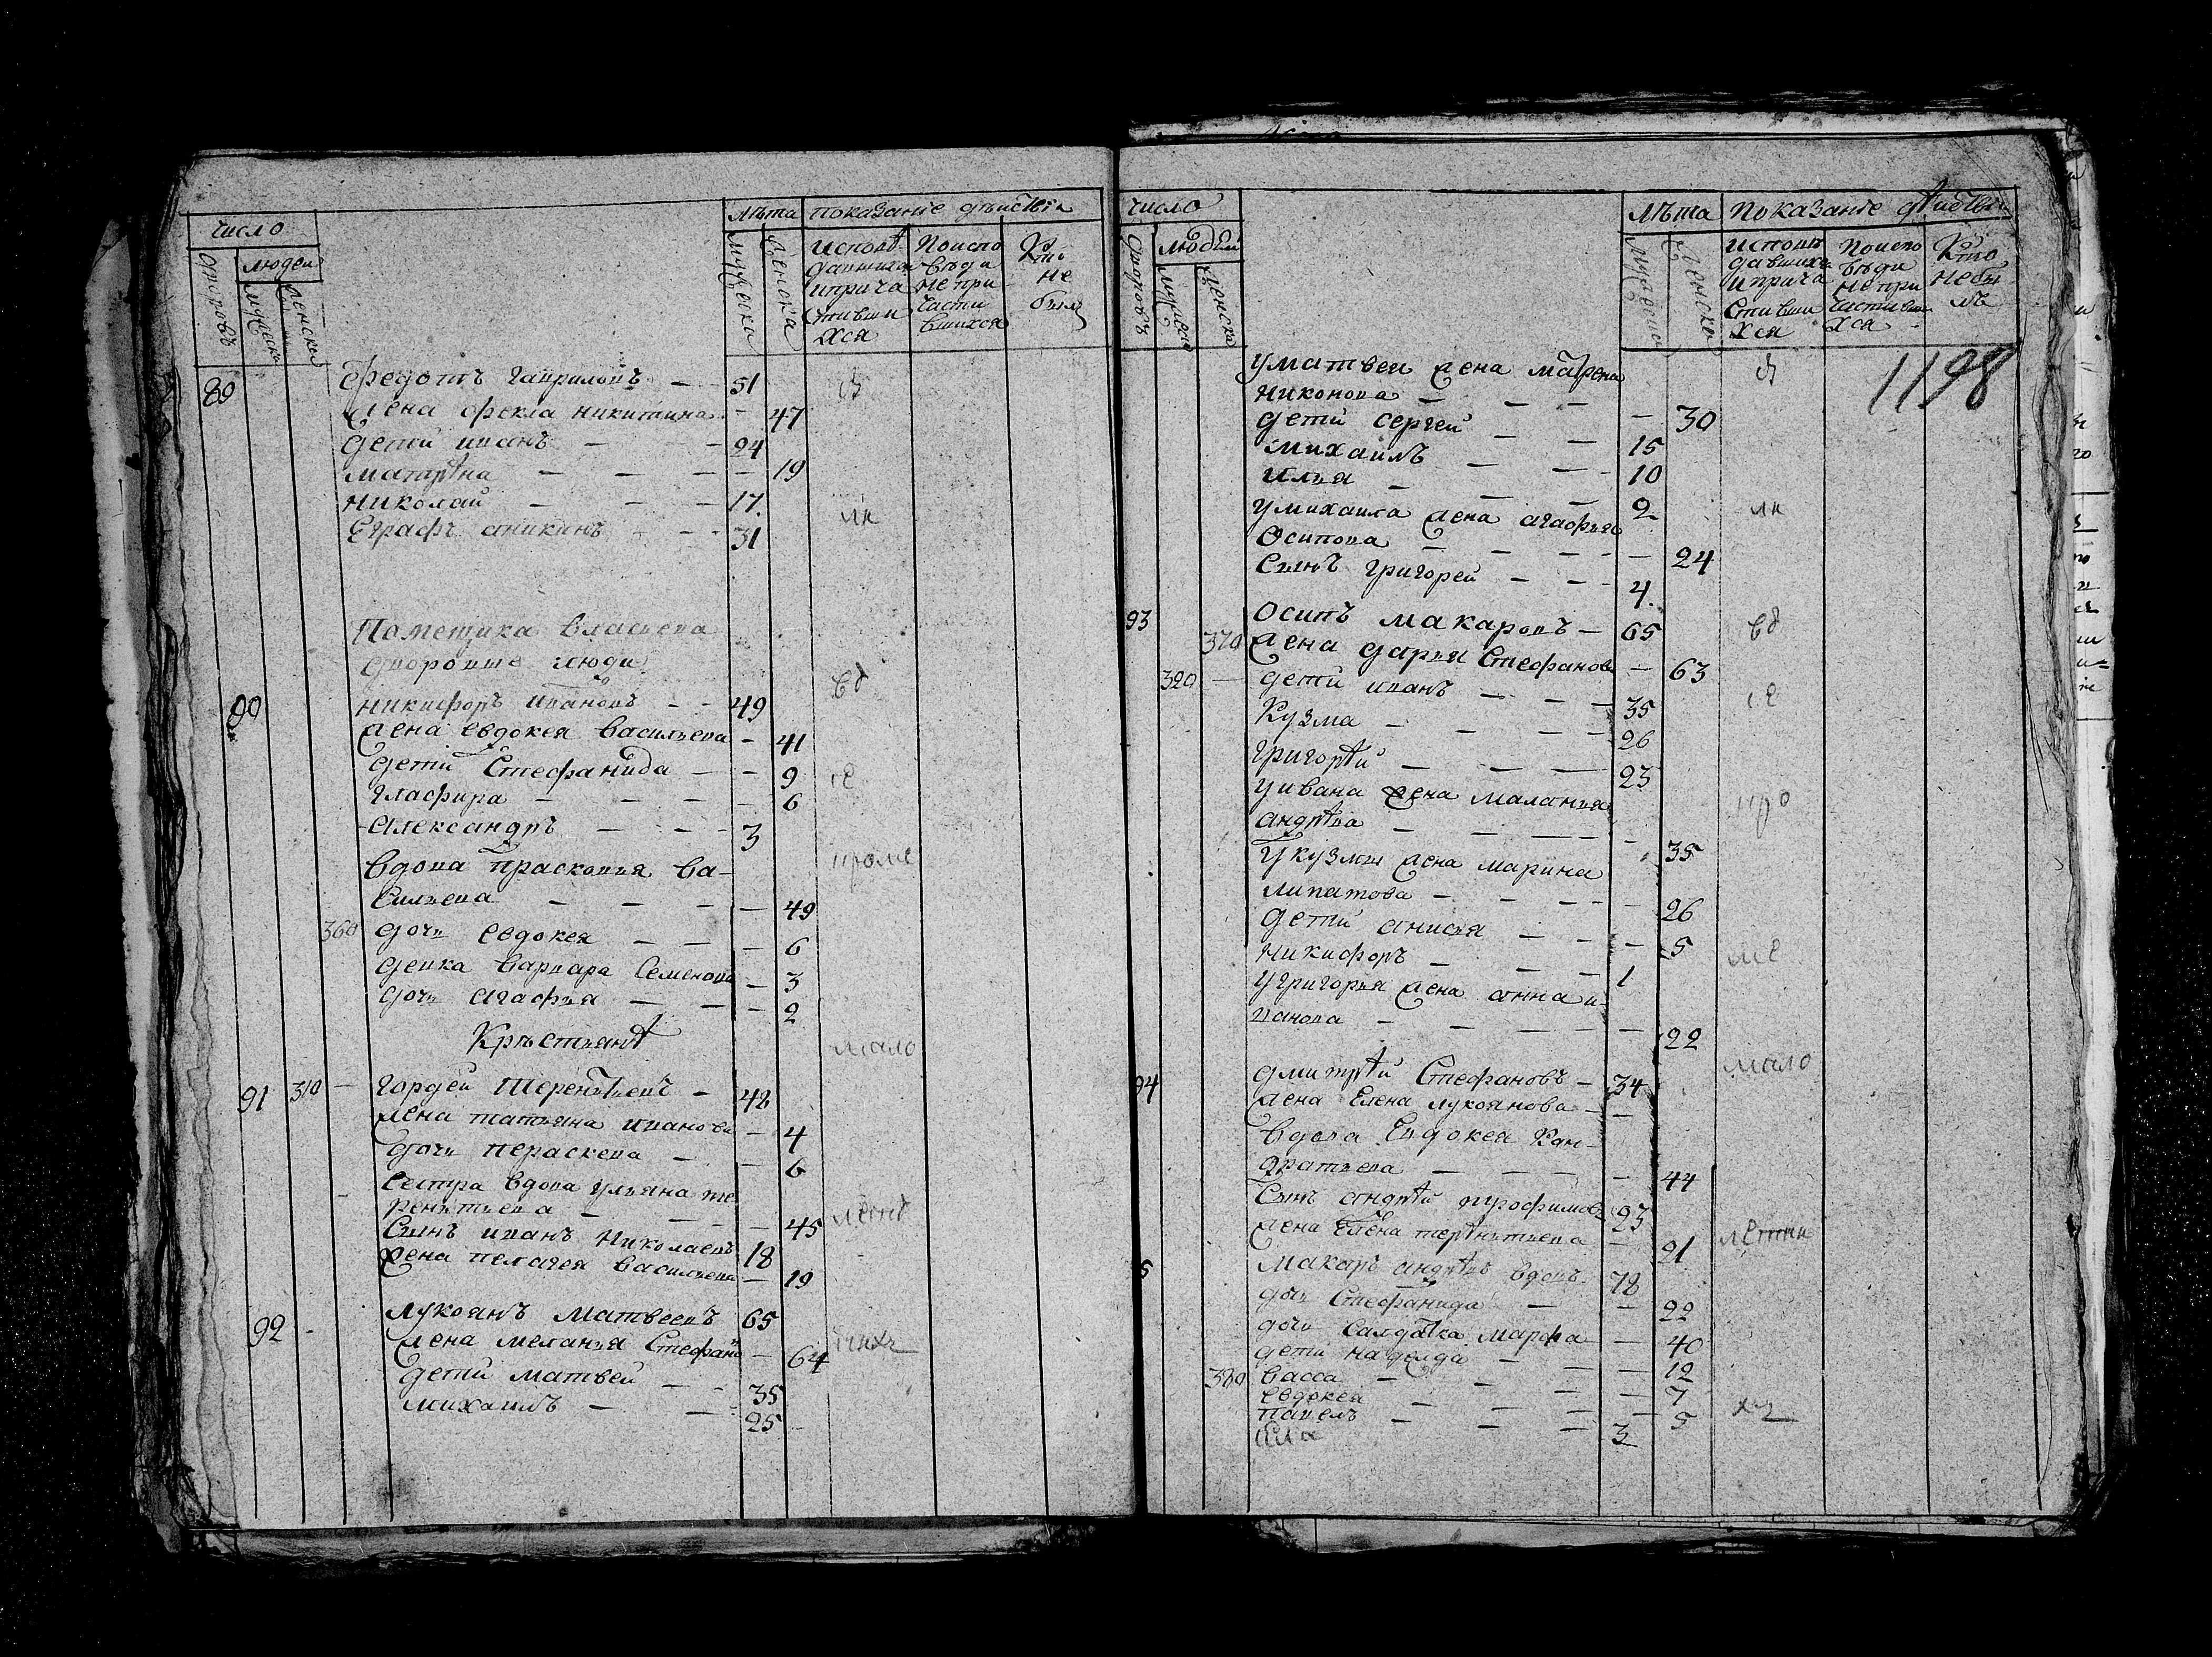 число
лѣта показанїе дѣиствїя
дворовъ
людеи
мужеска
женска
мужеска
женска
исповѣ
давшихся
иприча
стивши
хся
Поиспо
вѣди
непри
части
вшихся
Кто
не
былъ
89 федотъ гавриловъ — 51
жена фекла никитина — 47
дети иванъ — 24
матрѣна — 19
николаи — 17
Еграфъ аникинъ — 31
Помещика власьева
дворовые люди
90 никифоръ ивановъ — 49 вд
жена евдокея васильева — 41
дети Стефанида — 9
глафира — 6
александръ — 3
вдова Прасковья ва-
сильева — 49
360 дочь евдокея — 6
девка варвара Семенова — 3
дочь агафья — 2
Крѣстьянѣ мало
91 310 — гордеи Терентьевъ — 42
жена татьяна иванова — 4
дочь пераскева — 6
сестра вдова ульяна те
рентьева — 45
Сынъ иванъ Николаевъ 18
жена пелагея васильева — 19
92 лукоянъ Матвеевъ 65
жена меланья Стефано — 64
дети матвеи — 35
михаилъ — 25
число
лѣта Показанїе дѣиствїя
дворовъ
людеи
мужеска
женска
мужеска
женска
исповѣ
давшихся
иприча
стивши
хся
Поиспо
вѣди
непри
частивши
хся
Кто
небы
лъ
1198
уматвеи жена матрена
никонова — 30
дети сергеи — 15
михаилъ — 10
илья — 2
умихаила жена агафья
Осипова — 24
сынъ григореи — 4
93 осипъ макаровъ — 65 вд
370 жена дарья Стефанова — 63
320 — дети иванъ — 35
Кузма — 26
григорѣи — 23
уивана жена маланья
андрѣва — 35
укузмы жена марина
липатова — 26
дети анисья — 5
никифоръ — 1
угригорья жена анна и-
ванова — 22
94 дмитрѣи Стефановъ — 34 мало
жена Елена лукоянова —
вдова Евдокея Кон-
дратьева — 44
Сынъ андрѣи трофимовъ 23
жена Елена терѣнтьева — 21
5 макаръ андрѣвъ вдовъ 78
дочь Стефанида — 22
дочь салдатка марфа — 40
дети надежда — 12
380 васса — 7
евдокея — 5
павелъ — 3